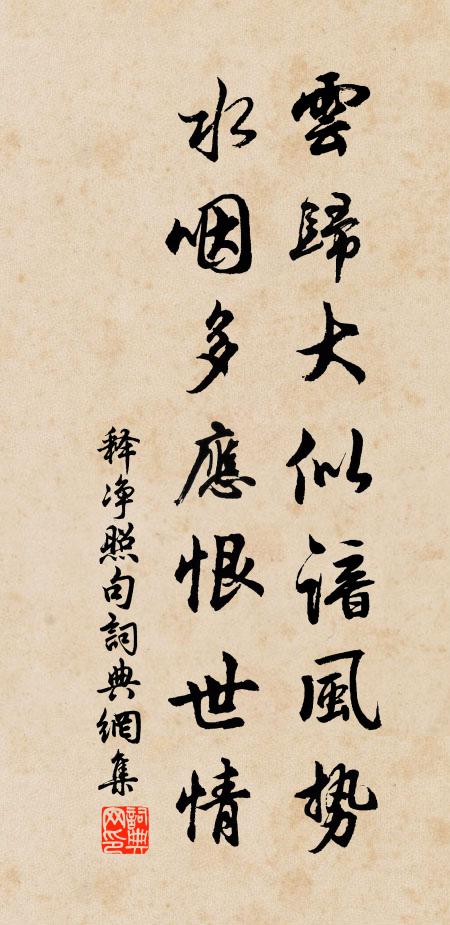 雲歸大似諳風勢
水咽多應恨世情
释净照句詞典網集
詞典網印